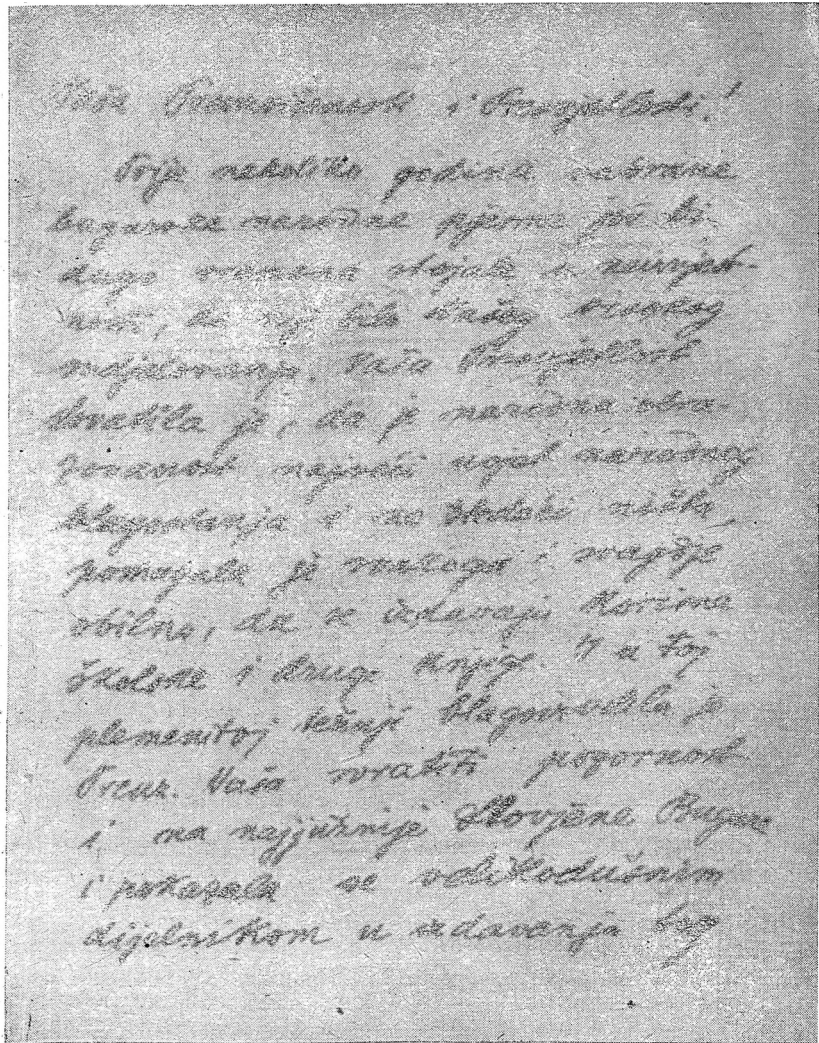 Vaša Preuzvišenosti i Presvjetlosti!
Prije nekoliko godina nabrane
bugarske narodne pjesme još bi
dugo vremena stojale u neizvjest-
nosti, da nij bilo Vašeg
Vaša Presvjetlost
shvatila je, da je narodna obra-
zovanost najveći ugel narodnog
blagostanja i ne štedeći ništa,
pomagala je svakoga i svagdje
obilno, da se izdavaju korisne
školske i druge knjige. I u toj
plemenitoj težnji blagoizvolila je
Preuz. Vaša svratiti pozornost
i na najjužnije Slovjene Bugare
i pokazala se velikodušnim
dijelnikom u izdavanju bug